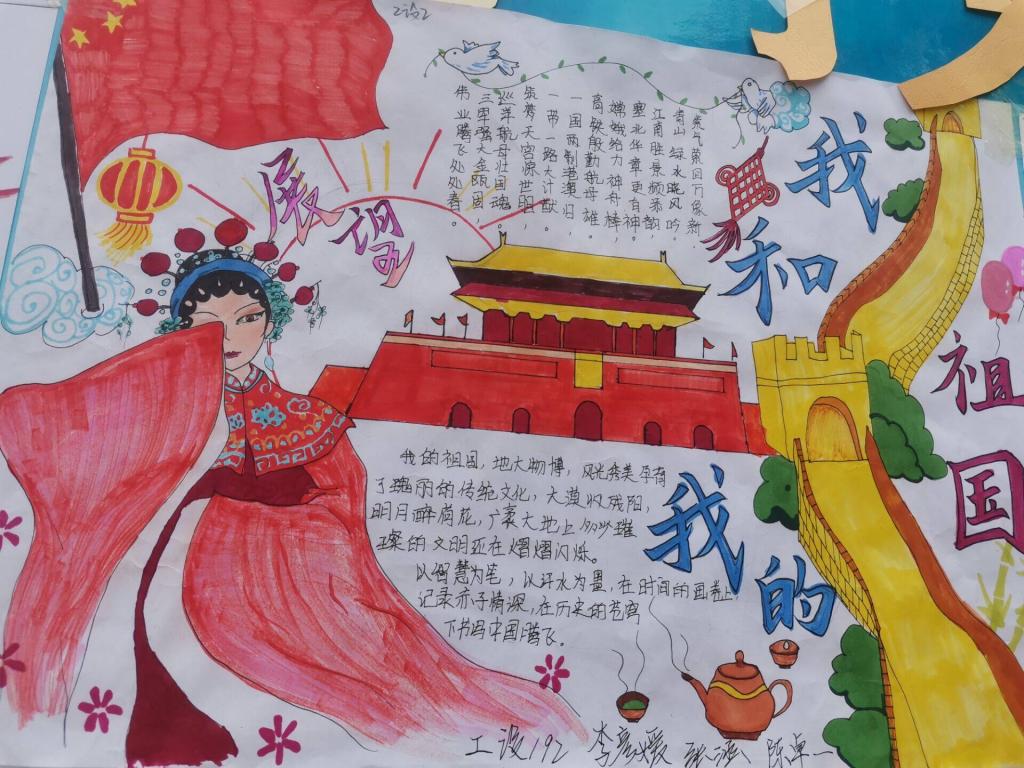 工设
展望
我和我的祖国
景气荣回万象新，
青山绿水晚风吟。
江南胜景频添韵，
塞北华章更有神。
嫦娥给力神舟棒，
高铁殷勤航母雄。
一国两制港澳归，
一带一路大计献。
天宫源世明，
巡洋航母壮国魂。
三军强大金瓯固，
伟业腾飞处处春。
我的祖国，地大物博，风光秀美孕育
了瑰丽的传统文化，大漠收残阳，
明月醉荷花，广袤大地上多少璀
璨的文明还在熠熠闪烁。
以智慧为笔，以汗水为墨，在时间的画卷上
记录赤子情深，在历史的苍穹
下书写中国腾飞。
工设192 李彦媛 陈卓一